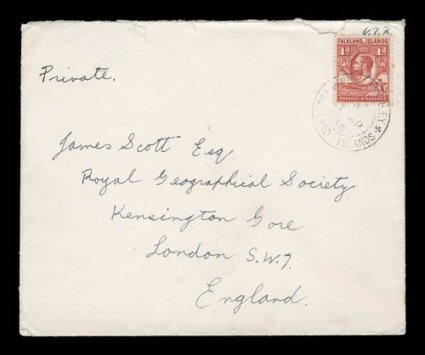 FALKLAND ISLANDS
1d 1d
POSTAGE & REVENUE
ISLANDS
Private.
James Scott Esq.
Royal Geographical Society
Kensington Gore
London S.W.7.
England.